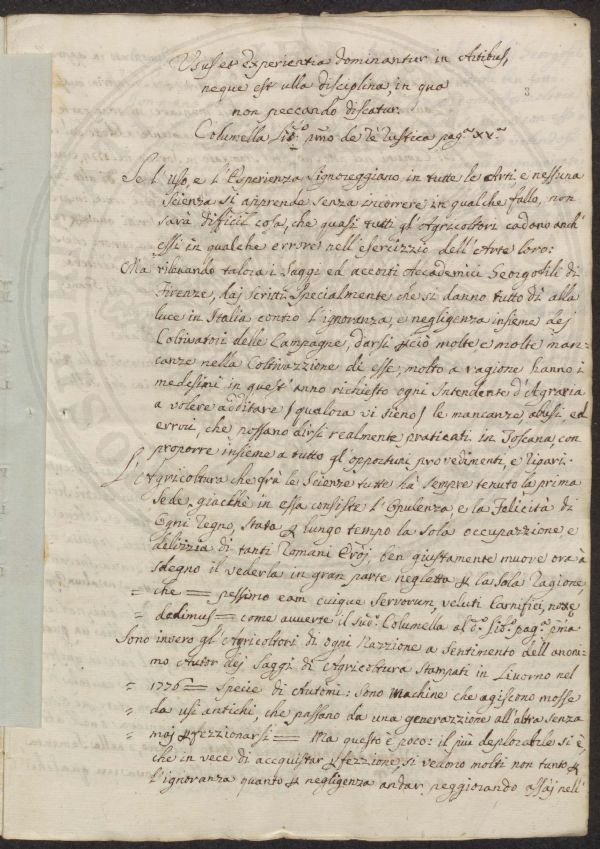 Usus et experientia dominantur in Artibus,
neque est ulla disciplina, in qua
non peccando discatur.
Columella Lib.º pmo de rè rustica pag.ª XV.ª
3
Se l'uso, e l'Esperienza signoreggiano in tutte le Arti, e nessuna
scienza si apprende senza incorrere in qualche fallo, non
sarà difficil cosa, che quasi tutti gl'Agricoltori cadono anch'
essi in qualche errore nell'esercizzio dell'Arte loro:
Ma rilevando talora i Saggi ed acconti Accademici Georgofili di
Firenze, daj scritti specialmente che si danno tutto dì alla
luce in Italia contro l'ignoranza, e negligenza insieme dej
Coltivatori delle Campagne, darsi p ciò molte, e molte man-
canze nella Coltivazzione di esse, molto a ragione hanno i
medesimi in quest'anno richiesto ogni Intendente d'Agraria
a volere additare / qualora vi sieno / le mancanze abusi, ed
errori, che possano dirsi realmente praticati in Toscana, con
proporre insieme a tutto gl'opportuni provedimenti, e ripari.
L'Agricoltura che frà le Scienze tutte hà sempre tenuto la prima
sede, giacchè in essa consiste l'Opulenza e la Felicità di
Ogni Regno, Stata p lungo tempo la sola occupazzione e
delizia di tanti Romani Eròj, ben giustamente muove ora à
sdegno il vederla in gran parte negletta p la sola Ragione,
= che == pessimo eam cuique servorum, veluti Carnifici, noxę
= dedimus == come avverte il sud.º Columella al d.º lib.º pag.ª pma
Sono invero gl'Agricoltori di ogni Nazzione a sentimento dell'anoni-
mo Autor dej Saggi di Agricoltura stampati in Livorno nel
= 1776 == Specie di Automi: sono machine che agiscono mosse
= da usi antichi, che passano da una generazzione all'altra senza
= maj pfezzionarsi == Ma questo è poco: il più deplorabile si è,
che in vece di acquistar pfezzione, si vedono molti non tanto p
l'ignoranza quanto p negligenza andar peggiorando assaj nell'